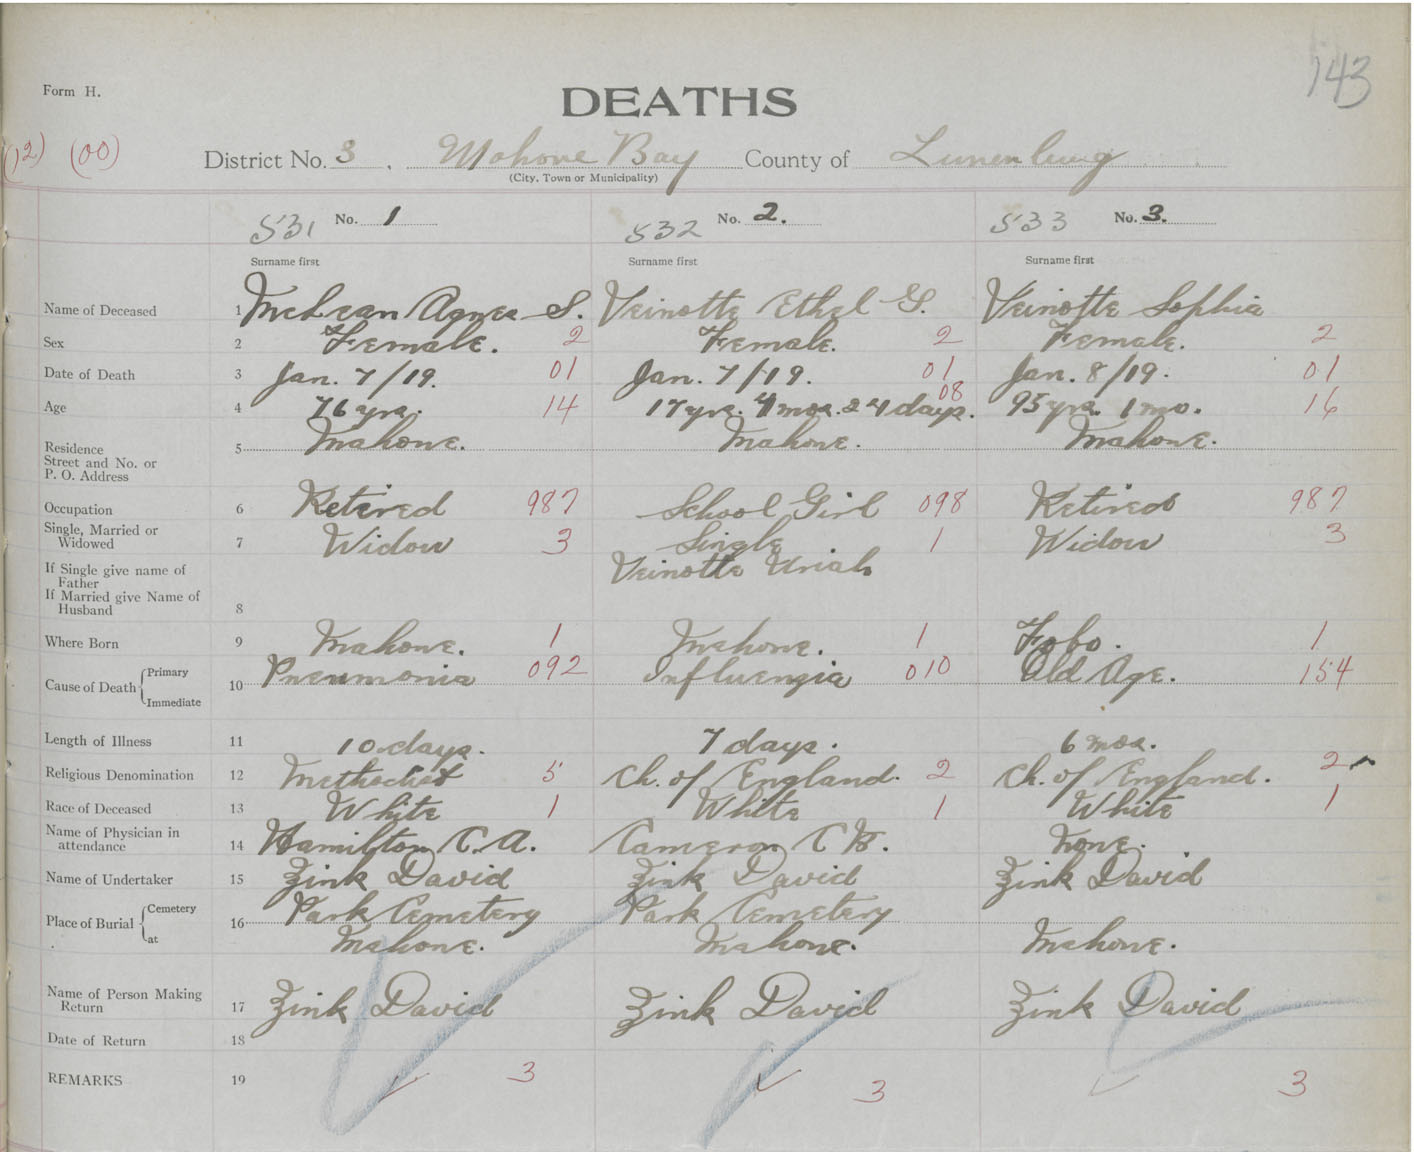 143
Form H.
DEATHS
(12) (00)
District No. 3, Mahone Bay County of Lunenburg
(City, Town or Municipality)
531 No. 1 532 No. 2. 533 No. 3.
Surname first Surname first Surname first
Name of Deceased 1 McLean Agnes S. Veinotte Ethel G. Veinotte Sophia
Sex 2 Female. 2 Female. 2 Female. 2
Date of Death 3 Jan. 7/19. 01 Jan. 7/19. 01 Jan. 8/19. 01
Age 4 76 yrs. 14 17 yrs. 4 mos. 24 days. 08 95 yrs. 1 mo. 16
Residence 5 Mahone. Mahone. Mahone.
Street and No. or
P. O. Address
Occupation 6 Retired 987 School Girl 098 Retired 987
Single, Married or
Widowed 7 Widow 3 Single 1 Widow 3
If Single give name of Veinotte Uriah
Father
If Married give Name of
Husband 8
Where Born 9 Mahone. 1 Mahone. 1 Fobo. 1
Cause of Death Primary 10 Pneumonia 092 Influenzia 010 Old Age. 154
Immediate
Length of Illness 11 10 days. 7 days. 6 mos.
Religious Denomination 12 Methodist 5 Ch. of England. 2 Ch. of England. 2
Race of Deceased 13 White 1 White 1 White 1
Name of Physician in
attendance 14 Hamilton C. A. Cameron C B. None.
Name of Undertaker 15 Zink David Zink David Zink David
Place of Burial Cemetery 16 Park Cemetery Park Cemetery
at Mahone. Mahone. Mahone.
Name of Person Making
Return 17 Zink David Zink David Zink David
Date of Return 18
REMARKS 19 3 3 3